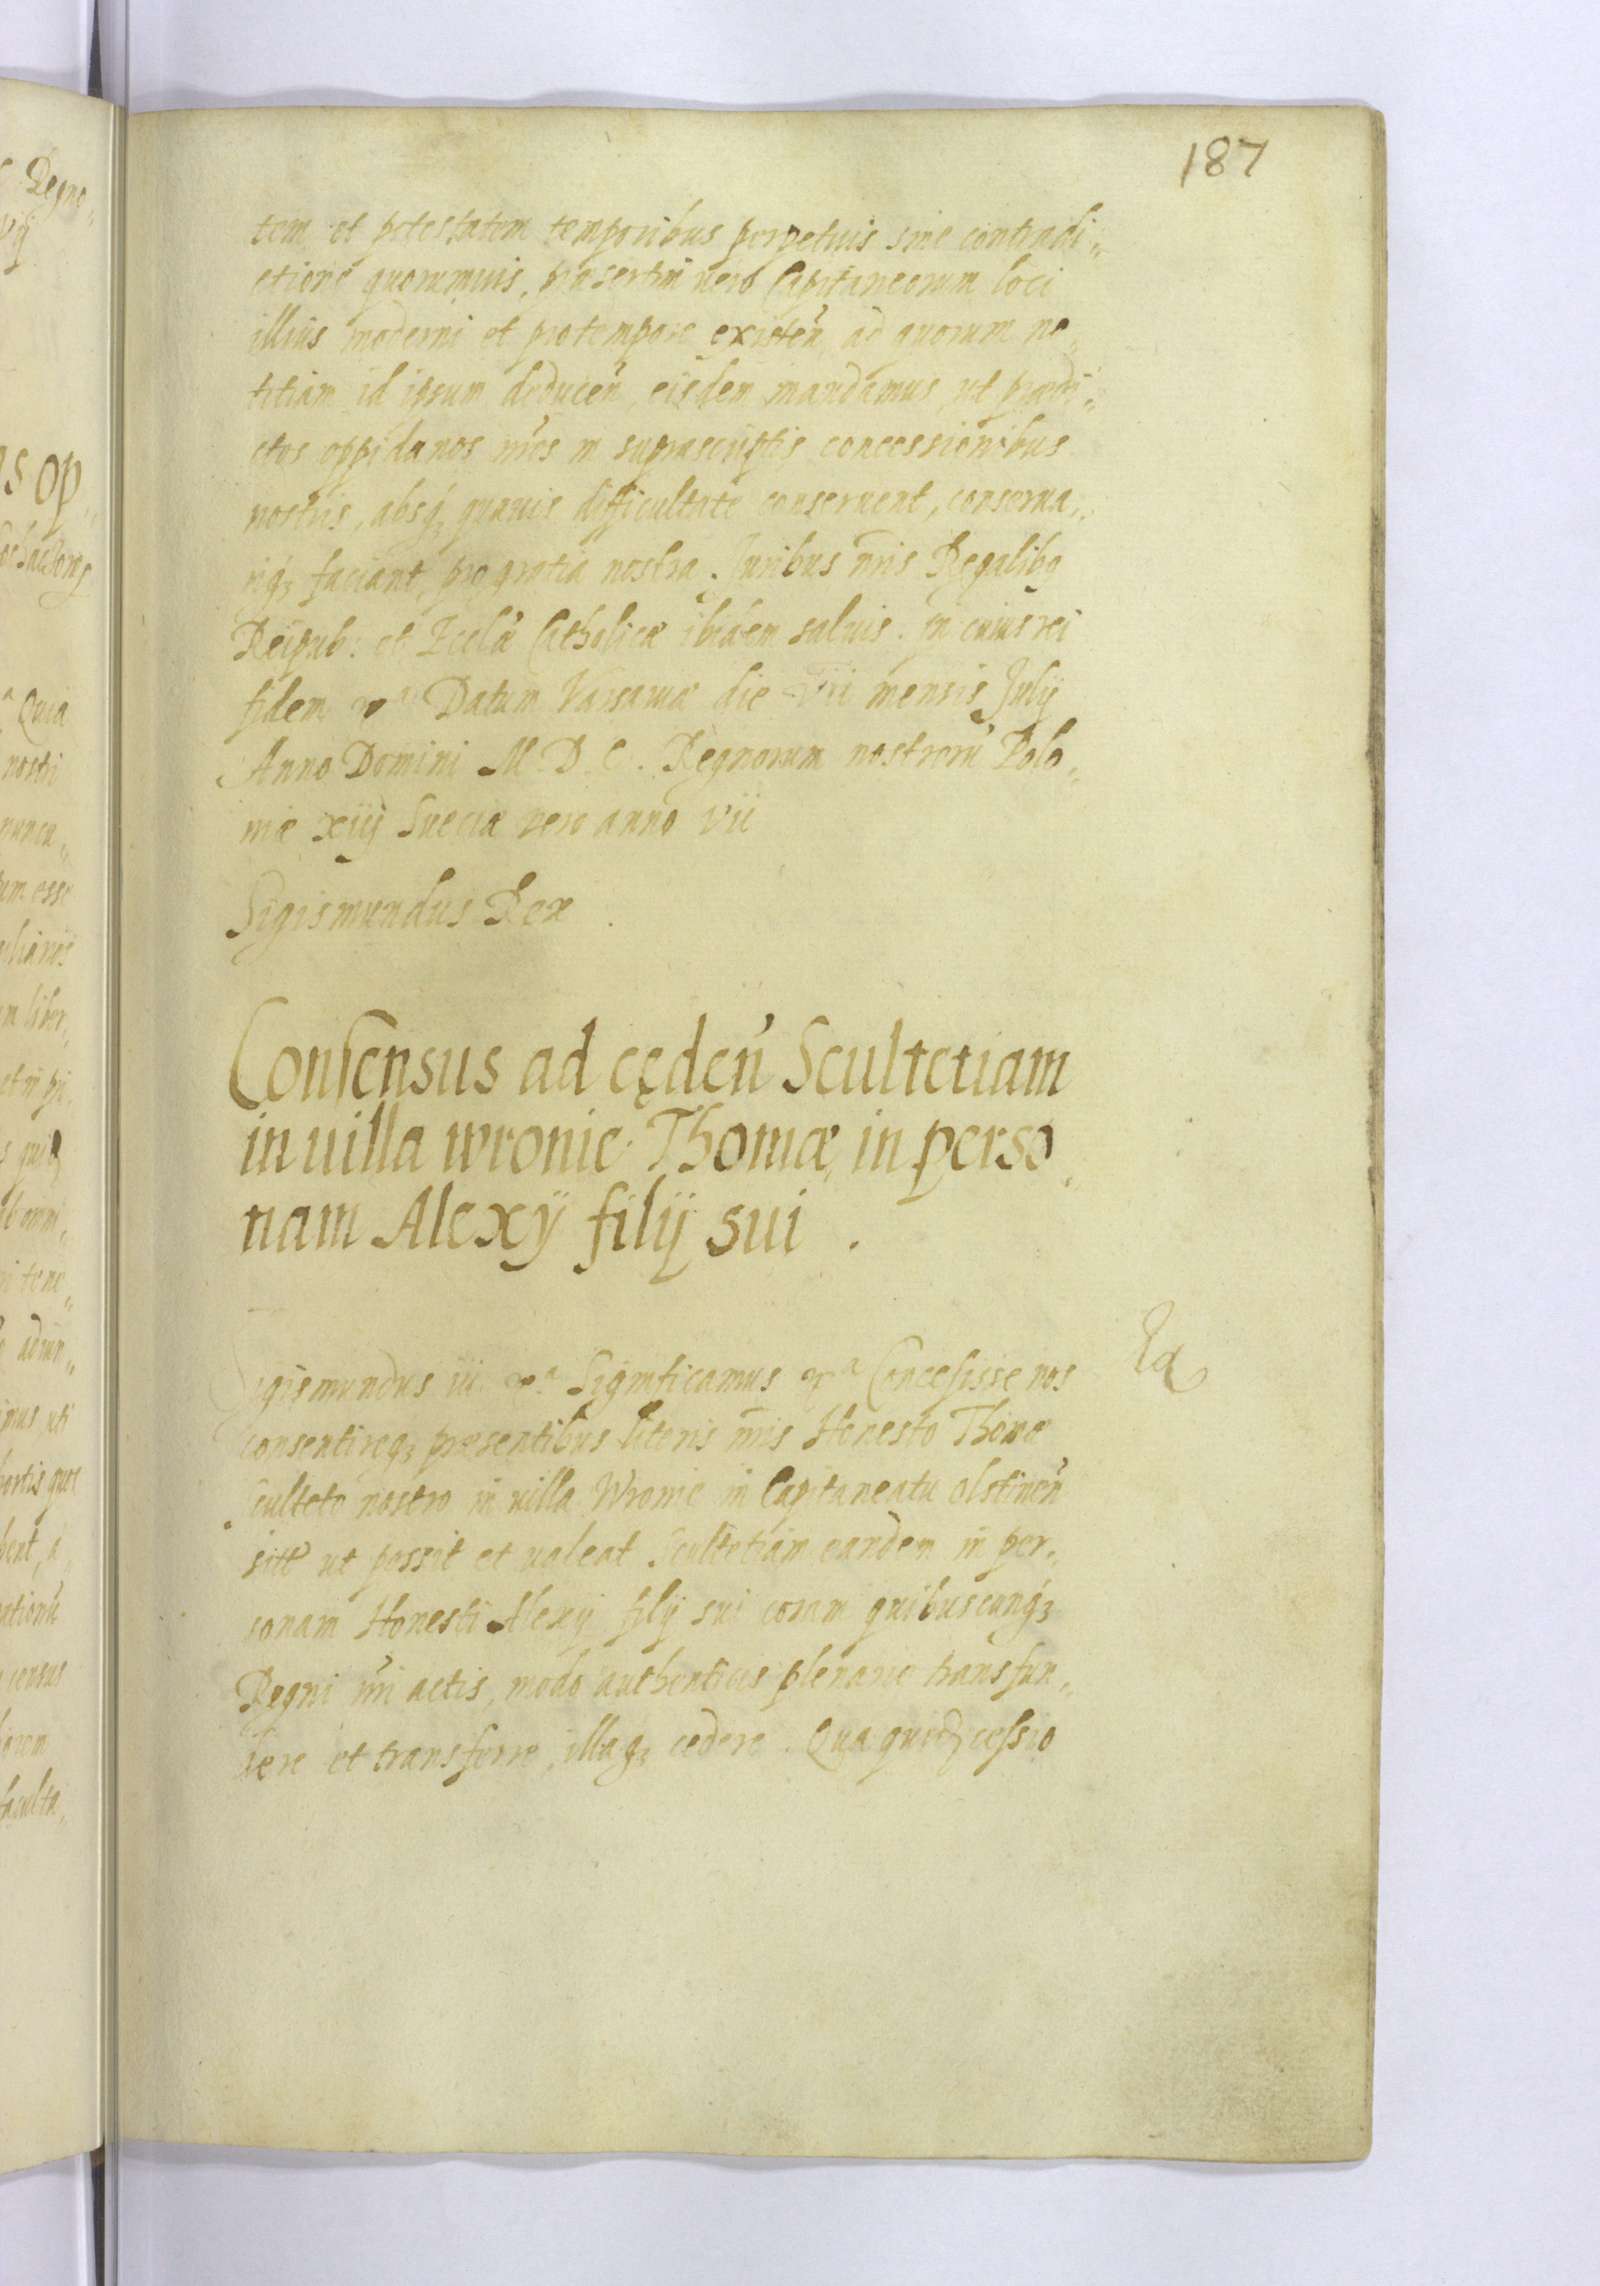 187
tem et potestatem temporibus perpetuis sine contradi„
ctione quorumuis, præsertim uero Capitaneorum loci
illius moderni et pro tempore existeñ ad quorum no„
titiam id ipsum deduceñ, eisdem mandamus, ut prædi„
ctos oppidanos nr̃os in suprascriptis concessionibus
nostris, absq́ꝫ quauis difficultate conseruent, conserua„
riq́ꝫ faciant, pro gratia nostra. Iuribus nr̃is Regalibꝫ
Reipub: et Eccłæ Catholicæ ibidem saluis. In cuius rei
fidem Datum Varsauiæ die vii mensis Julij
Anno Domini M.D.C. Regnorum nostrorũ Polo„
niæ xiij Sueciæ vero anno vii
Sigismundus Rex
Consensus ad cędeñ Scultetiam
in uilla wronie Thomæ in perso„
nam Alexÿ filÿ sui.
Sigismundus iii. Significamus Concessisse nos
consentireq́ꝫ præsentibus literis nr̃is Honesto Thomæ
sculteto nostro in uilla Wronie in Capitaneatu olstineñ
ut possit et ualeat Scultetiam eandem in per„
sonam Honesti Alexij filij sui coram quibuscunq́ꝫ
Regni nr̃i actis, modo authenticis plenarie transfun„
dere et transferre, illaq́ꝫ cedere. Qua quidẽ cessio